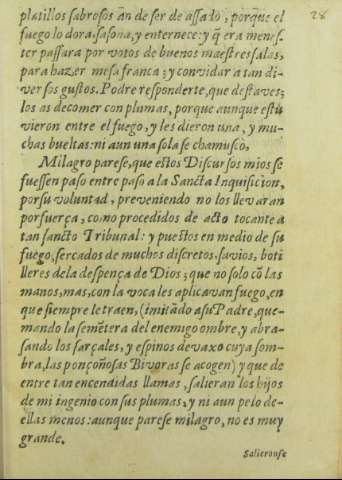 28
platillos sabrosos an de ser de assado, porque el
fuego lo dora, sasona, y enternece: y q̃ era menes-
ter passara por votos de buenos maestresalas,
para hazer mesa franca; y convidar a tan di-
versos gustos. Podre responderte, que destaves;
los as decomer con plumas, porque aunque estu
vieron entre el fuego, y les dieron una, y mu-
chas bueltas: ni aun una sola se chamuscò,
Milagro parese, que estos Discursos mios se
fuessen paso entre paso a la Sancta Inquisicion,
por su voluntad, preveniendo no los llevaran
por fuerça, como procedidos de acto tocante a
tan sancto Tribunal: y puestos en medio de su
fuego, sercados de muchos discretos, savios, boti
lleres dela despença de Dios; que no solo cõ las
manos, mas, con la voca les aplicavan fuego, en
que siempre le traen, (imitãdo a su Padre, que-
mando la semẽtera del enemigo ombre, y abra-
sando los sarçales, y espinos devaxo cuya som-
bra, las ponçoñosas Bivoras se acogen) y que de
entre tan encendidas llamas, salieran los hijos
de mi ingenio con sus plumas, y ni aun pelo de-
ellas menos: aunque parese milagro, no es muy
grande.
Salieronse